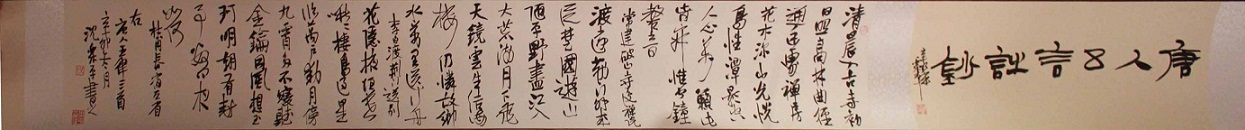 唐人五言詩鈔
清晨入古寺初
日照高林曲徑
通幽處禪房
花木深山光悅
鳥性潭影空
人心萬籟此
皆寂惟餘鐘
磬音
常建破山寺後禪院
渡遠荊門外來
從楚國遊山
隨平野盡江入
大荒流月下飛
天鏡雲生結海
樓仍憐故鄉
水萬里送行舟
李白渡荊門送別
花隱掖垣暮啾
啾棲鳥過星
臨萬戶動月傍
九霄多不寢聽
金鑰因風想玉
珂明朝有封
事數問夜
如何
杜甫春宿左省
右
唐人五律三首
辛卯冬月